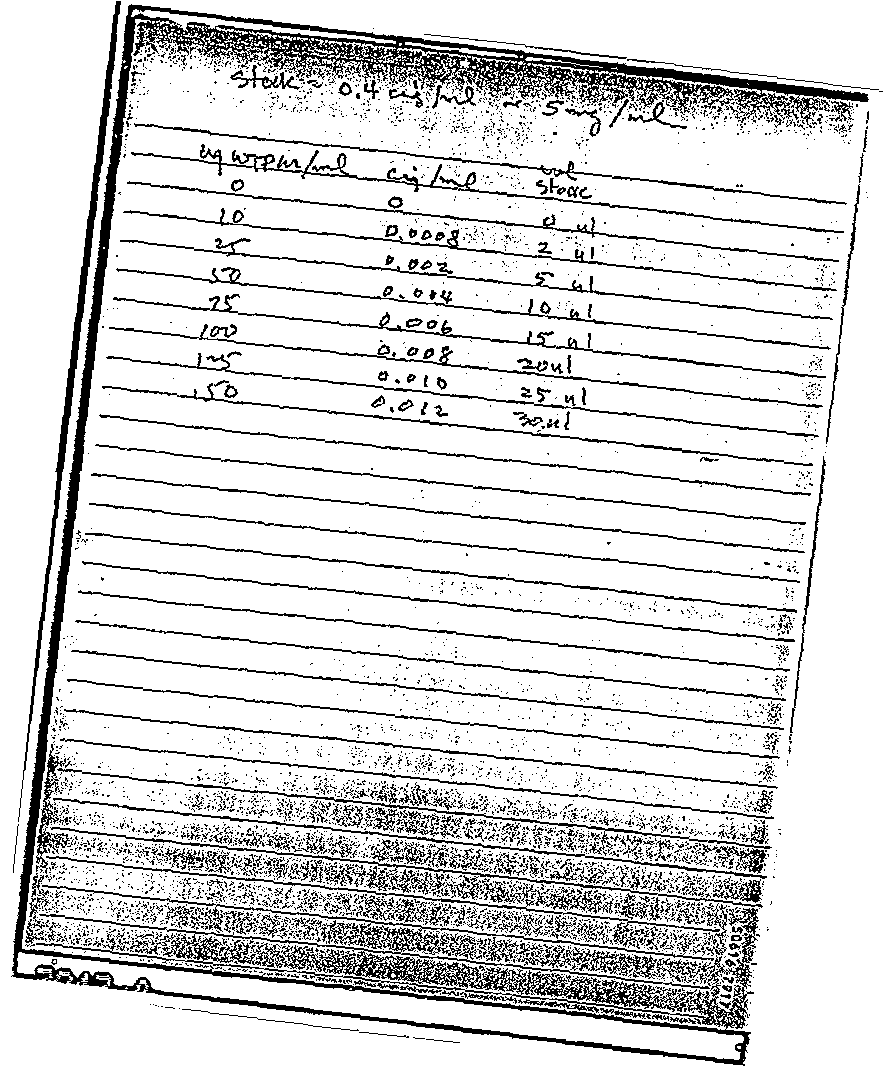 stock = 0.4 cig/ml or 5 mg/ml
ug WTPM/ml cig/ml vol stock
0 0 0 ul
10 0.0008 2 ul
25 0.002 5 ul
50 0.004 10 ul
75 0.006 15 ul
100 0.008 20 ul
125 0.010 25 ul
150 0.012 30 ul